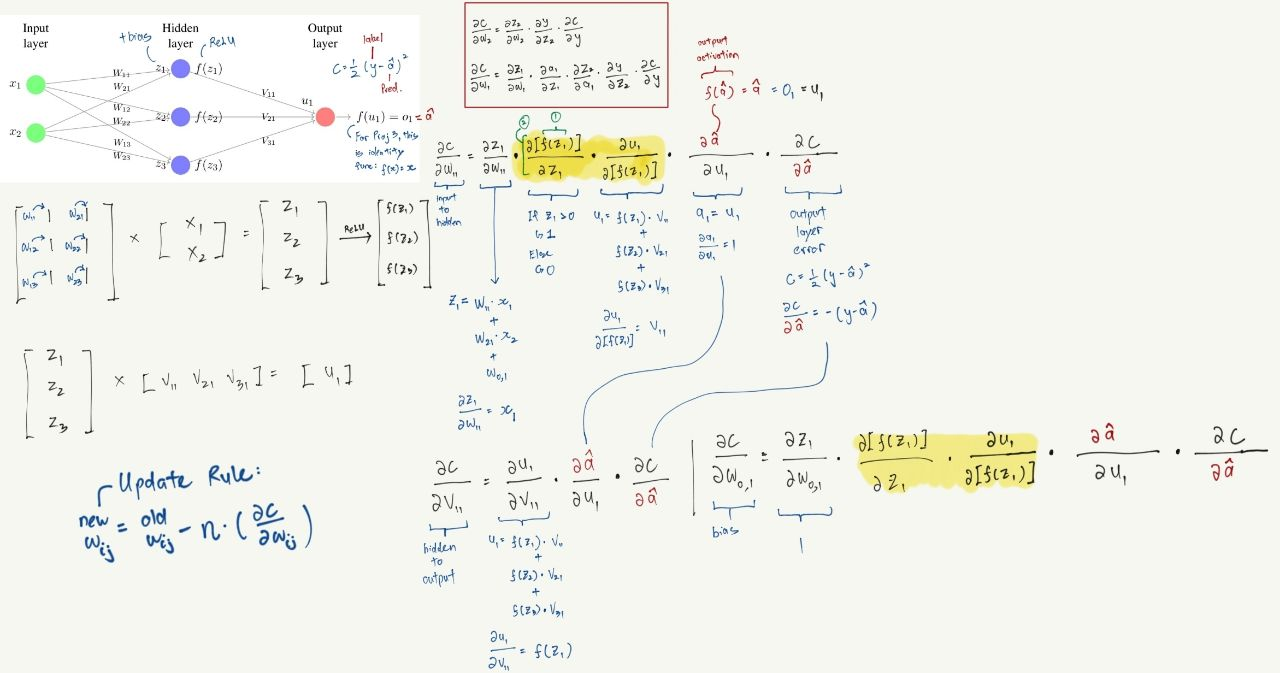 Input layer
Hidden layer
Output layer
+bias
ReLU
label
C = 1/2 (y - â)²
Pred.
x₁
x₂
W₁₁
W₂₁
W₁₂
W₂₂
W₁₃
W₂₃
z₁
f(z₁)
z₂
f(z₂)
z₃
f(z₃)
V₁₁
V₂₁
V₃₁
u₁
f(u₁) = o₁ = â
For Proj 3, this
is identity
func: f(x) = x
∂C/∂w₂ = ∂z₂/∂w₂ · ∂y/∂z₂ · ∂C/∂y
∂C/∂w₁ = ∂z₁/∂w₁ · ∂a₁/∂z₁ · ∂z₂/∂a₁ · ∂y/∂z₂ · ∂C/∂y
output
activation
f(â) = â = O₁ = u₁
② ①
∂C/∂w₁₁ = ∂z₁/∂w₁₁ · [∂[f(z₁)]/∂z₁ · ∂u₁/∂[f(z₁)] · ∂â/∂u₁ · ∂C/∂â
input
to
hidden
If z₁ > 0
↳ 1
Else
↳ 0
u₁ = f(z₁) · V₁₁
+
f(z₂) · V₂₁
+
f(z₃) · V₃₁
∂u₁/∂[f(z₁)] = V₁₁
a₁ = u₁
∂a₁/∂u₁ = 1
output
layer
error
C = 1/2 (y - â)²
∂C/∂â = -(y - â)
z₁ = w₁₁ · x₁
+
w₂₁ · x₂
+
w₀,₁
∂z₁/∂w₁₁ = x₁
[w₁₁ w₂₁] × [x₁] = [z₁] ReLU → [f(z₁)]
[w₁₂ w₂₂] [x₂] [z₂] [f(z₂)]
[w₁₃ w₂₃] [z₃] [f(z₃)]
[z₁]
[z₂] × [V₁₁ V₂₁ V₃₁] = [u₁]
[z₃]
Update Rule:
new wᵢⱼ = old wᵢⱼ - η · (∂C/∂wᵢⱼ)
∂C/∂V₁₁ = ∂u₁/∂V₁₁ · ∂â/∂u₁ · ∂C/∂â
hidden
to
output
u₁ = f(z₁) · V₁₁
+
f(z₂) · V₂₁
+
f(z₃) · V₃₁
∂u₁/∂V₁₁ = f(z₁)
∂C/∂w₀,₁ = ∂z₁/∂w₀,₁ · ∂[f(z₁)]/∂z₁ · ∂u₁/∂[f(z₁)] · ∂â/∂u₁ · ∂C/∂â
bias
1